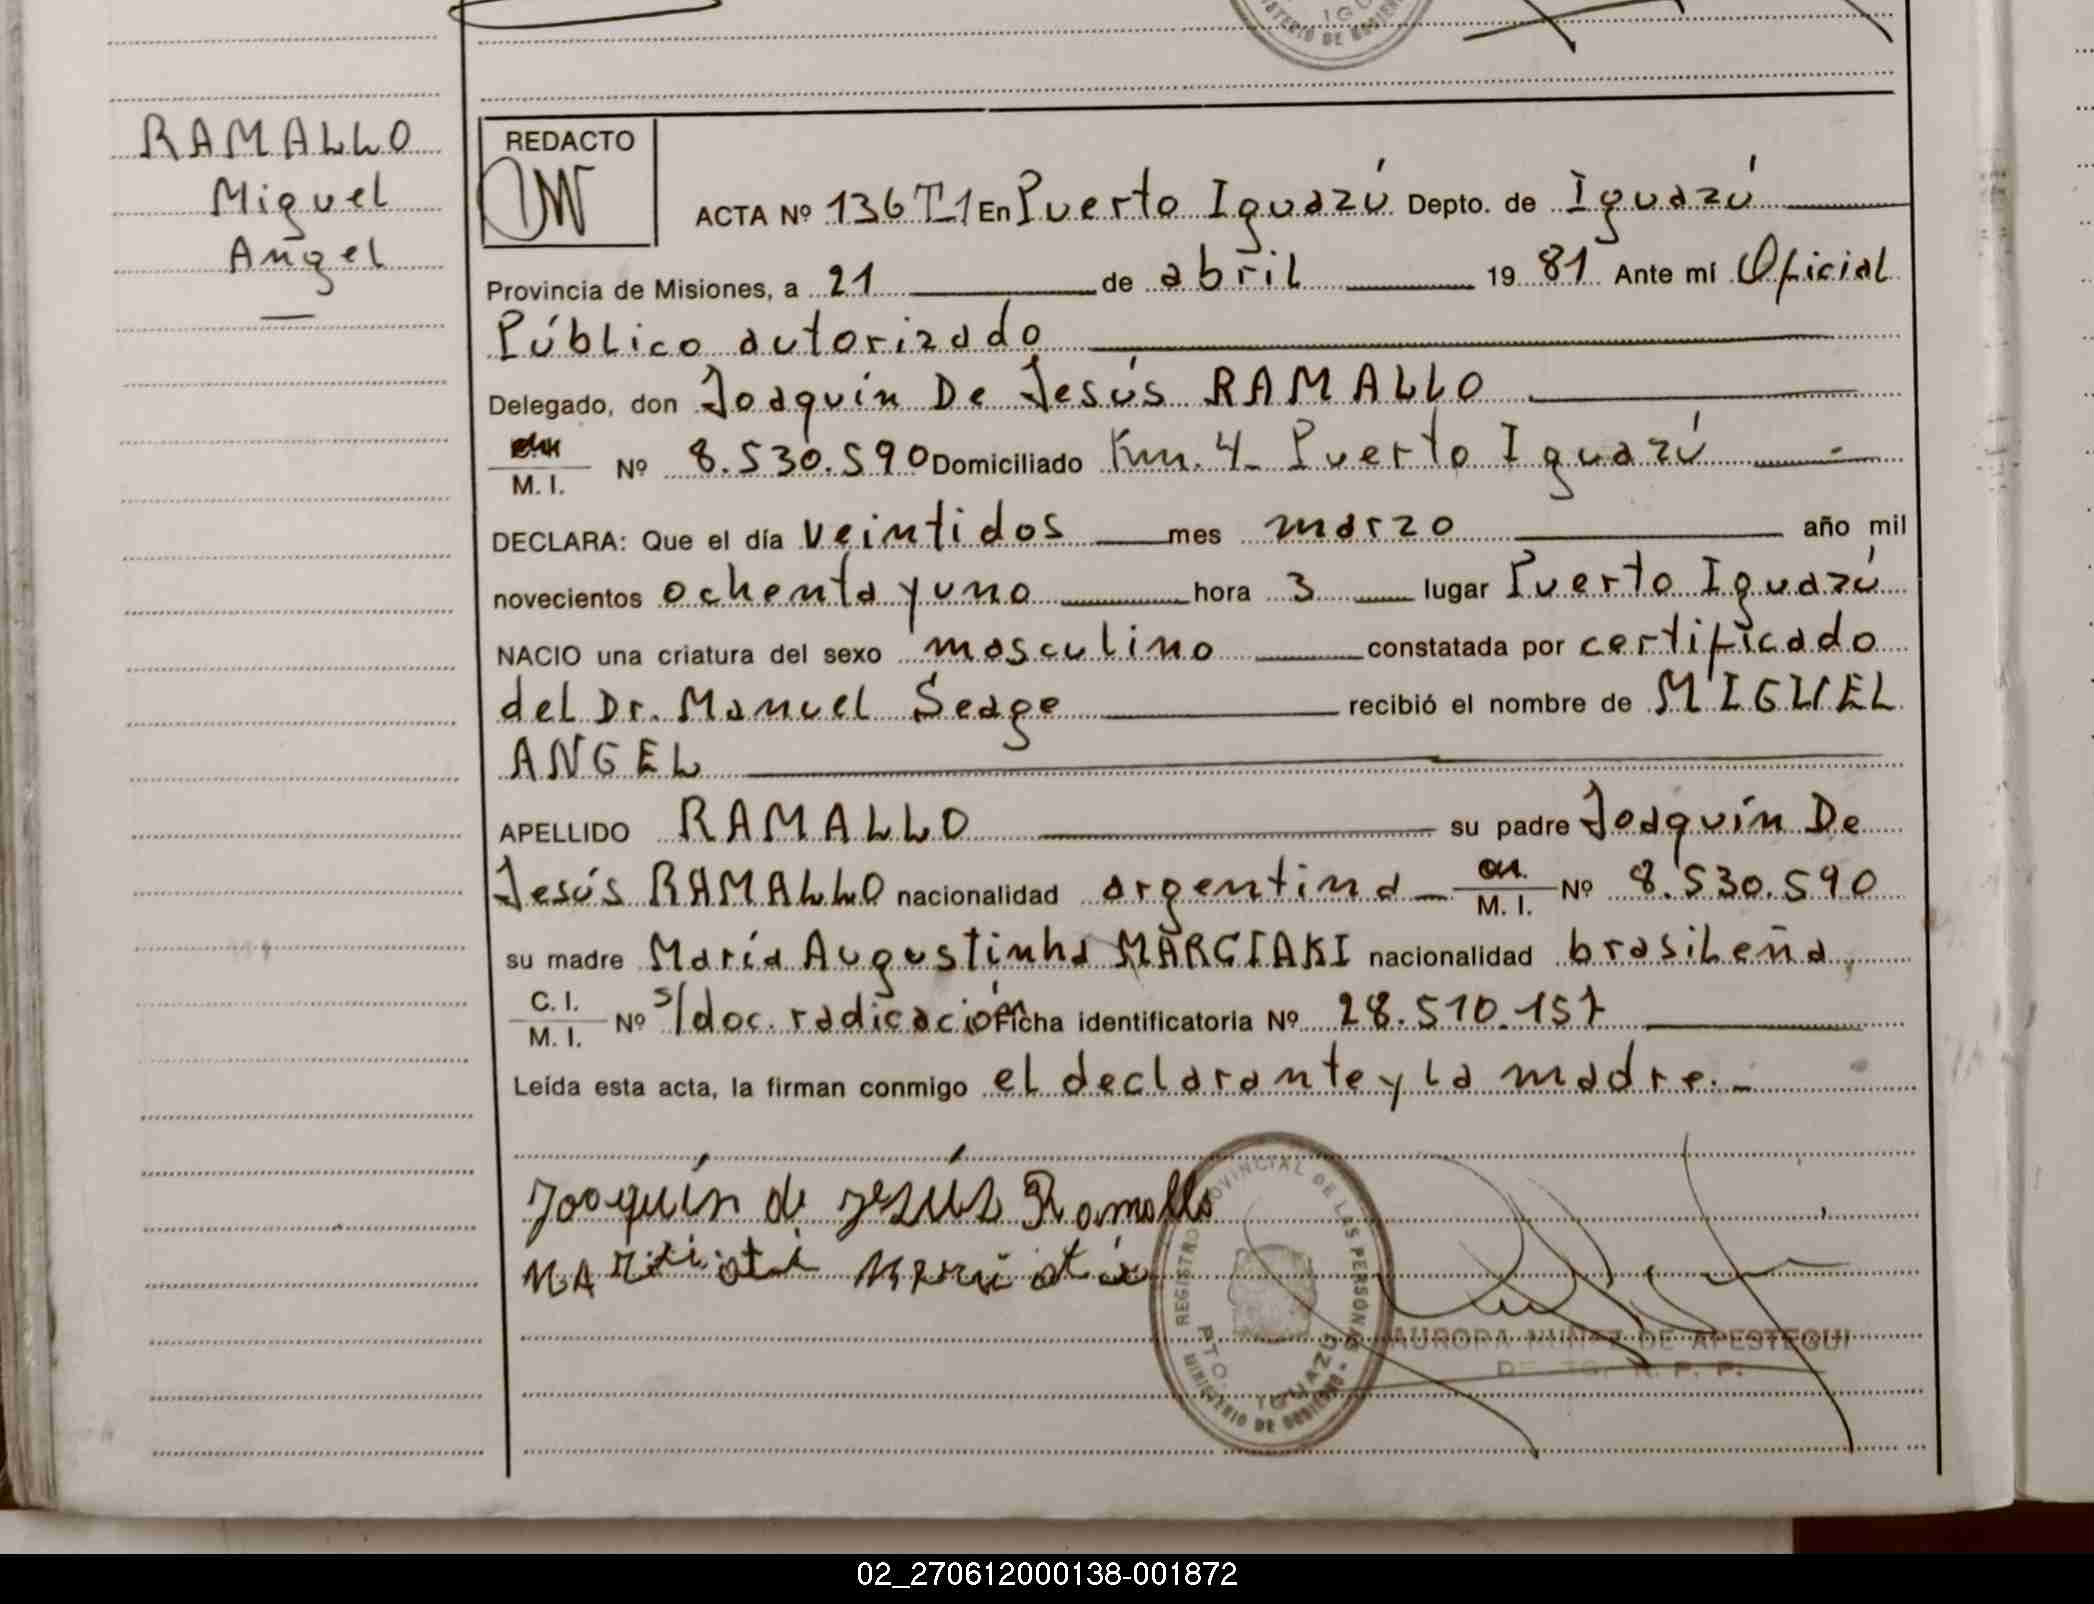 RAMALLO
Miguel
Angel
REDACTO
ACTA Nº 136 T1 En Puerto Iguazú Depto. de Iguazú
Provincia de Misiones, a 21 de abril 19 81 Ante mí Oficial
Público autorizado
Delegado, don Joaquín De Jesús RAMALLO
M. I. Nº 8.530.590 Domiciliado Km. 4 Puerto Iguazú
DECLARA: Que el día veintidos mes marzo año mil
novecientos ochenta y uno hora 3 lugar Puerto Iguazú
NACIO una criatura del sexo masculino constatada por certificado
del Dr. Manuel Seage recibió el nombre de MIGUEL
ANGEL
APELLIDO RAMALLO su padre Joaquín De
Jesús RAMALLO nacionalidad argentina M. I. Nº 8.530.590
su madre María Augustinha MARCIAKI nacionalidad brasileña,
C. I.
M. I. Nº s/doc. radicación Ficha identificatoria Nº 28.510.157
Leída esta acta, la firman conmigo el declarante y la madre.-
Joaquín de Jesús Ramallo
REGISTRO PROVINCIAL DE LAS PERSONAS
PTO. IGUAZU
MINISTERIO DE GOBIERNO
AURORA NUÑEZ DE APESTEGUI
02_270612000138-001872